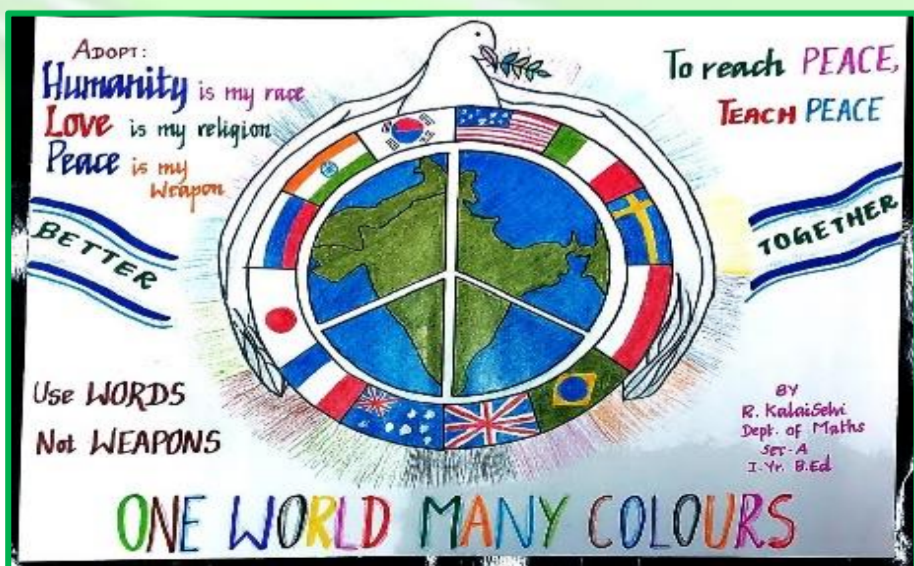 ADOPT:
Humanity is my race
Love is my religion
Peace is my
Weapon
To reach PEACE,
TEACH PEACE
BETTER
TOGETHER
Use WORDS
Not WEAPONS
BY
R. KalaiSelvi
Dept. of Maths
Sec-A
I-Yr. B.Ed
ONE WORLD MANY COLOURS